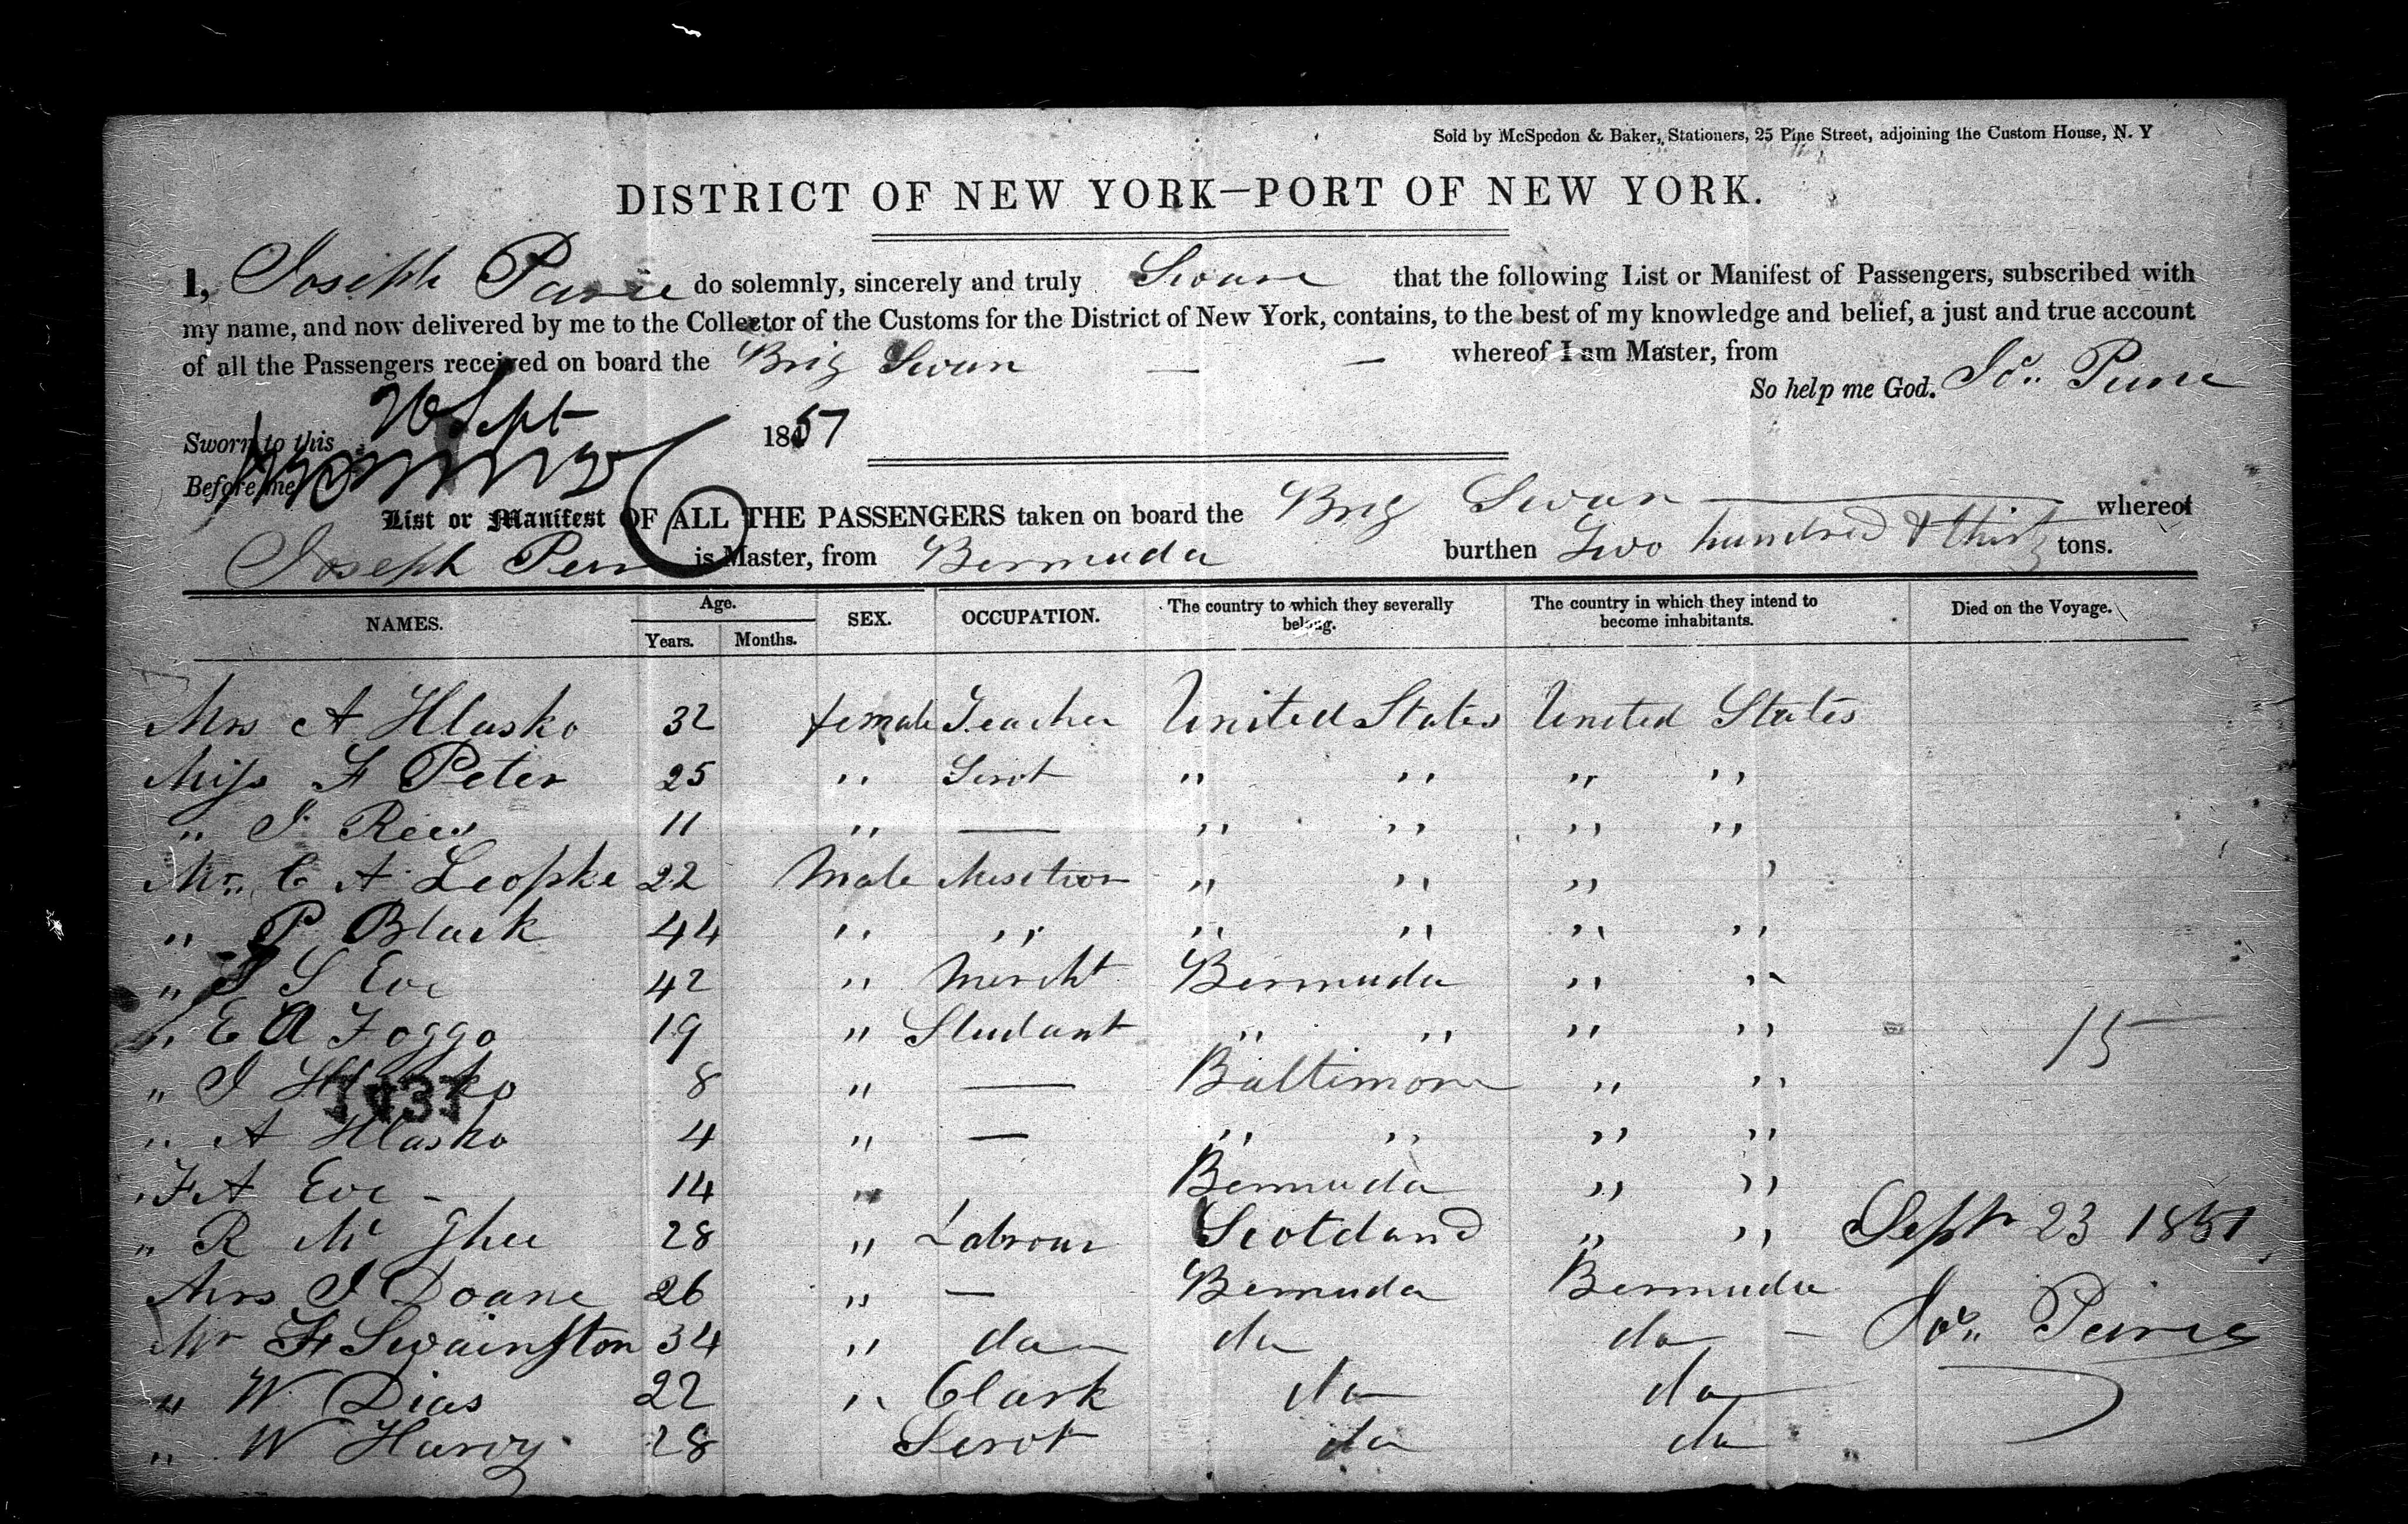 Sold by McSpedon & Baker, Stationers, 25 Pine Street, adjoining the Custom House, N. Y
DISTRICT OF NEW YORK—PORT OF NEW YORK.
I, Joseph do solemnly, sincerely and truly Swan that the following List or Manifest of Passengers, subscribed with
my name, and now delivered by me to the Collector of the Customs for the District of New York, contains, to the best of my knowledge and belief, a just and true account
of all the Passengers received on board the Brig Swan — — whereof I am Master, from
So help me God. Jos.
Sworn to this Sept 1851
Before me
List or Manifest OF ALL THE PASSENGERS taken on board the Brig Swan whereof
Joseph is Master, from Bermuda burthen Two hundred & thirty tons.
NAMES. Age. Years. Months. SEX. OCCUPATION. The country to which they severally belong. The country in which they intend to become inhabitants. Died on the Voyage.
Mrs A Hlasko 32 female Teacher United States United States
Miss F Peter 25 " Servt " " " "
" J 11 " — " " " "
Mr. C A Leopke 22 Male " " " "
" P Black 44 " " " " " "
" S Eve 42 " Mercht Bermuda " "
" E A Foggo 19 " Studant " " " " 15
" J 8 " — Baltimore " "
1037
" A Hlasko 4 " — " " " "
" F A Eve - 14 " Bermuda " "
" R Mc Ghee 28 " Labrour Scotdand " " Sept 23 1851
Mrs J Doane 26 " — Bermuda Bermuda
Mr F Swainston 34 " do do do — Jos.
" W Dias 22 " Clark do do
" W Harvy 28 Servt do do